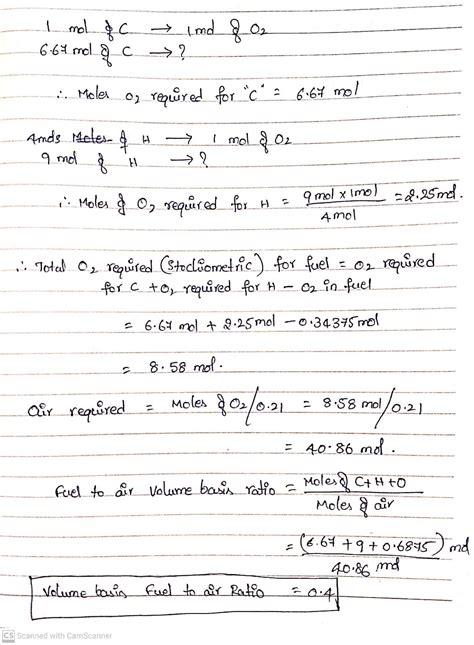 1 mol of C → 1 mol of O2
6.67 mol of C → ?
∴ Moles O2 required for "C" = 6.67 mol
4 mols Moles of H → 1 mol of O2
9 mol of H → ?
∴ Moles of O2 required for H = 9 mol x 1 mol / 4 mol = 2.25 mol.
∴ Total O2 required (Stociometric) for fuel = O2 required
for C + O2 required for H - O2 in fuel
= 6.67 mol + 2.25 mol - 0.34375 mol
= 8.58 mol.
Air required = Moles of O2/0.21 = 8.58 mol/0.21
= 40.86 mol.
Fuel to air volume basis ratio = Moles of C+H+O / Moles of air
= (6.67 + 9 + 0.6875) mol / 40.86 mol
Volume basis Fuel to air Ratio = 0.4
CS Scanned with CamScanner